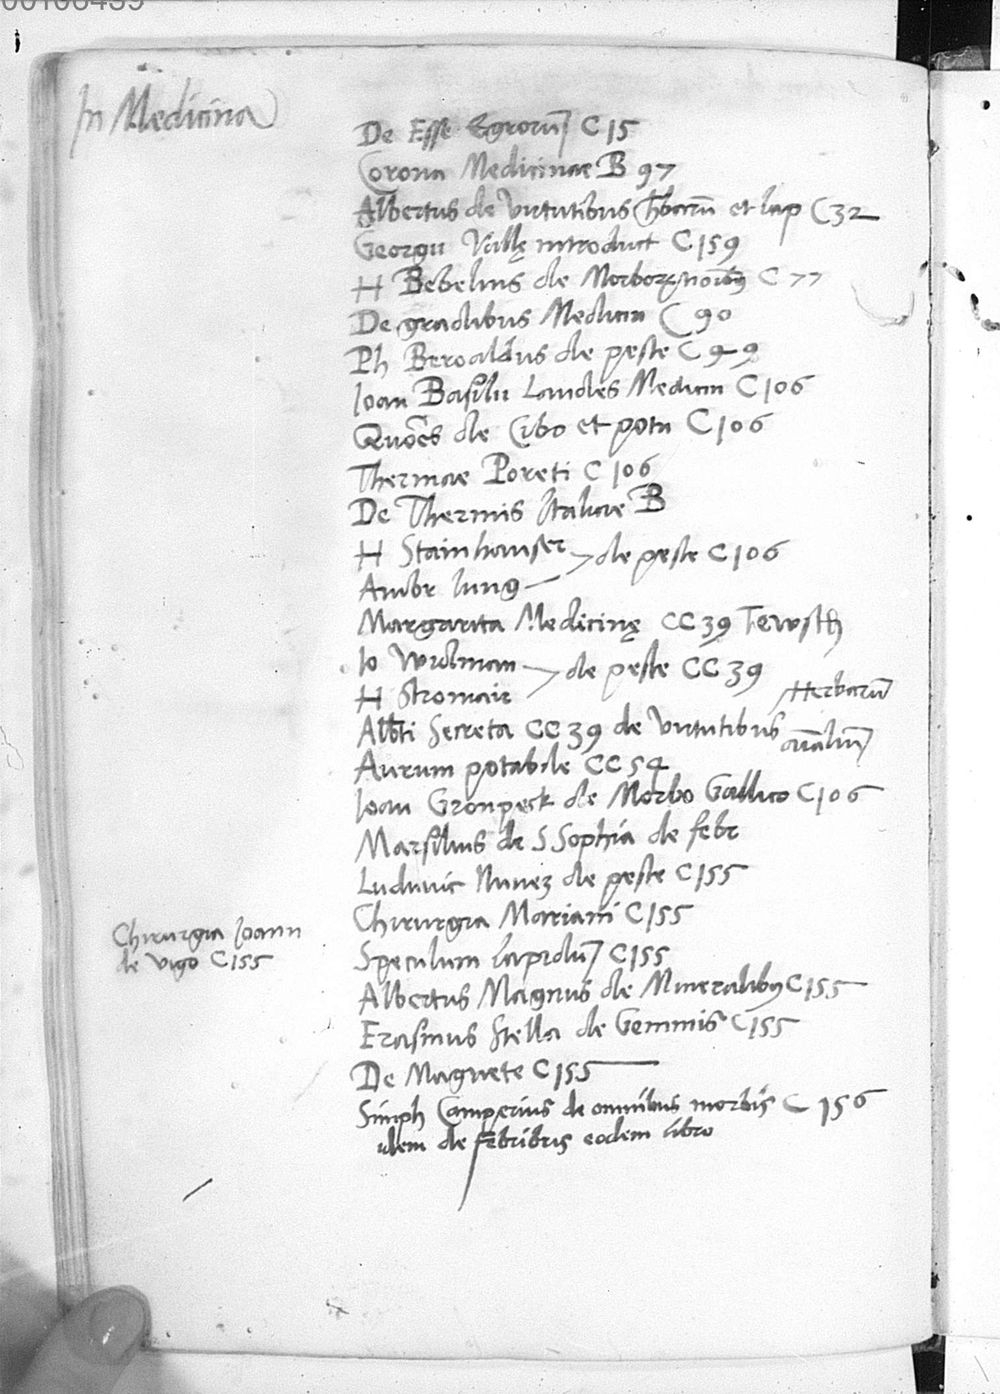 00106459
In Medicina
De Esse Egrorũ C 15
Corona Medicinae B 97
Albertus de virtutibus hbarũ et lap C 32
Georgii Vallę introduct C 159
H Bebelius de Morborꝝ C 77
De gradibus Medicin C 90
Ph Beroaldus de peste C 99
Ioan Basilii Laudes Medicin C 106
Quões de Cibo et potu C 106
Thermae Poreti C 106
De Thermis Italiae B
H Stainhauser
de peste C 106
Ambr Iung
Margarita Medicinę CC 39 Tewsch
Io Widman
de peste CC 39
H Stromair
Herbarũ
Albti Secreta CC 39 de virtutibus
aĩaliũ
Aurum potabile CC 54
Ioan Gronpeck de Morbo Gallico C 106
Marsilius de S Sophia de febr
Ludovic Nunez de peste C 155
Chirurgia Mariani C 155
Chirurgia Ioann
de Vigo C 155
Speculum Lapidũ C 155
Albertus Magnus de Mineralibꝰ C 155
Erasmus Stella de Gemmis C 155
De Magnete C 155
Simph Camperius de omnibus morbis C 156
idem de febribus eodem libro